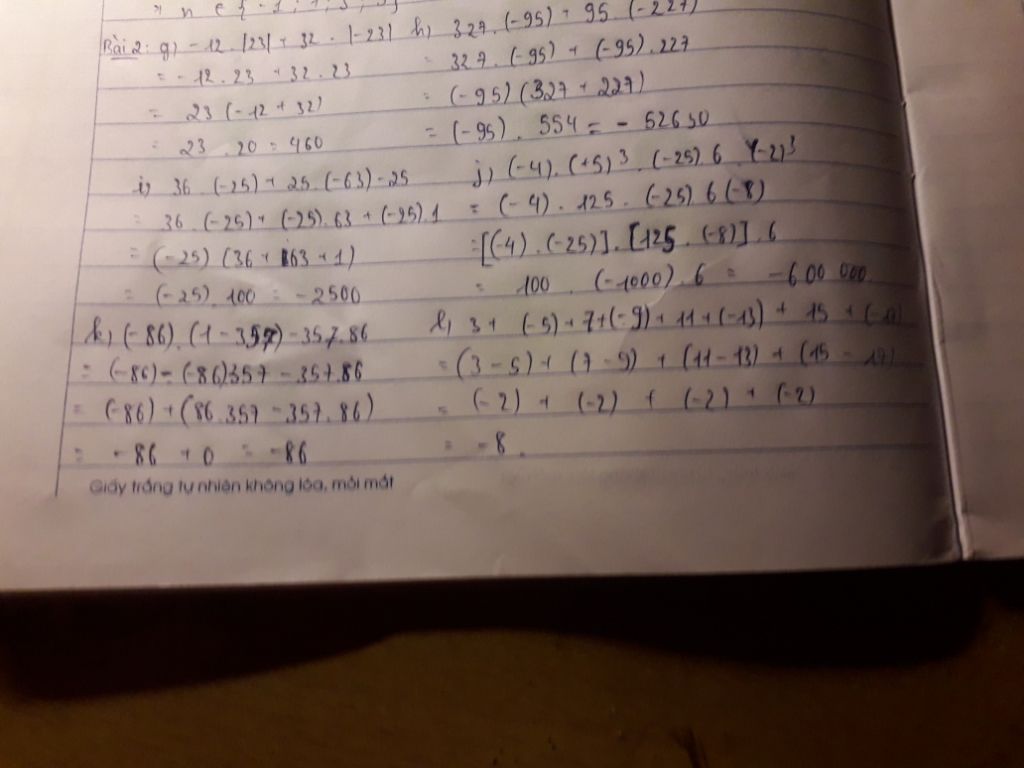 n ∈ {-1; 1; 3; 5}
Bài 2: g) -12 . |23| + 32 . |-23|
= -12 . 23 + 32 . 23
= 23 (-12 + 32)
= 23 . 20 = 460
h) 327 . (-95) + 95 . (-227)
= 327 . (-95) + (-95) . 227
= (-95) (327 + 227)
= (-95) . 554 = - 52630
i) 36 . (-25) + 25 . (-63) - 25
= 36 . (-25) + (-25) . 63 + (-25) . 1
= (-25) (36 + 63 + 1)
= (-25) . 100 = -2500
j) (-4) . (+5)³ . (-25) . 6 . (-2)³
= (-4) . 125 . (-25) 6 (-8)
= [(-4) . (-25)] . [125 . (-8)] . 6
= 100 . (-1000) . 6 = -600 000
k) (-86) . (1 - 357) - 357.86
= (-86) - (-86)357 - 357.86
= (-86) + (86.357 - 357.86)
= -86 + 0 = -86
l) 3 + (-5) + 7 + (-9) + 11 + (-13) + 15 + (-17)
= (3 - 5) + (7 - 9) + (11 - 13) + (15 - 17)
= (-2) + (-2) + (-2) + (-2)
= -8.
Giấy trắng tự nhiên không lóa, mỏi mắt